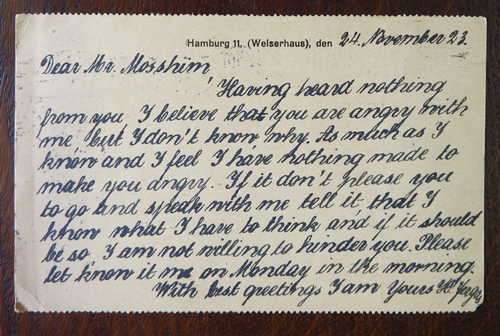 Hamburg 11, (Welserhaus), den 24. November 23.
Dear Mr. Mosshim,
Having heard nothing
from you I believe that you are angry with
me, but I don't know why. As much as I
know and I feel I have nothing made to
make you angry. If it don't please you
to go and speak with me tell it that I
know what I have to think and if it should
be so, I am not willing to hinder you. Please
let know it me on Monday in the morning.
With best greetings I am Yours